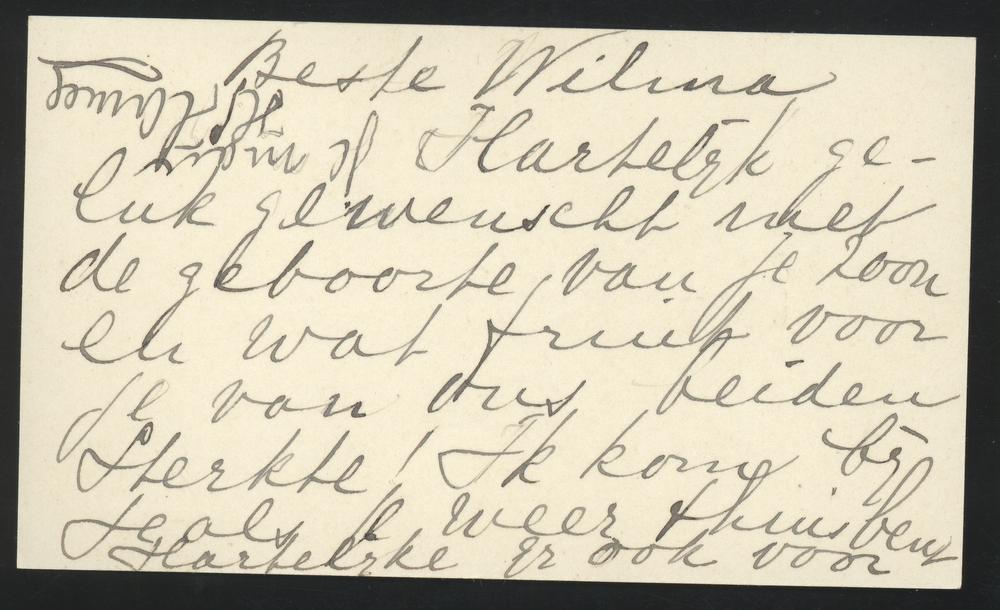 Beste Wilma
Hartelijk ge-
luk gewenscht met
de geboorte van je zoon
en wat fruit voor
je van ons beiden
Sterkte! Ik kom bij
je als je weer thuis bent
Hartelijke gr ook voor
je man